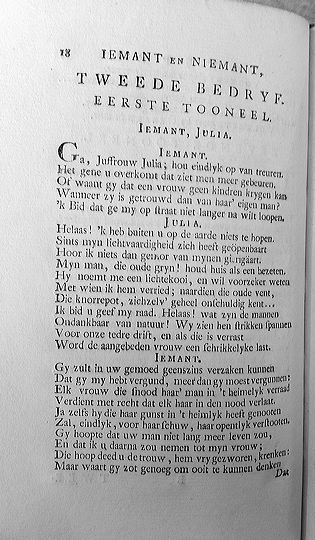 18 IEMANT EN NIEMANT,
TWEEDE BEDRYF.
EERSTE TOONEEL.
IEMANT, JULIA.
IEMANT.
Ga, Juffrouw Julia; hou eindlyk op van treuren.
Het gene u overkomt dat ziet men meer gebeuren.
Of waant gy dat een vrouw geen kindren krygen kan
Wanneer zy is getrouwd dan van haar' eigen man?
'k Bid dat ge my op straat niet langer na wilt loopen.
JULIA.
Helaas! 'k heb buiten u op de aarde niets te hopen.
Sints myn lichtvaardigheid zich heeft geöpenbaart
Hoor ik niets dan gemor van mynen
Myn man, die oude gryn! houd huis als een bezeten.
Hy noemt me een lichtekooi, en wil voorzeker weten
Met wien ik hem verried; naardien die oude vent,
Die knorrepot, zichzelv' geheel onschuldig kent...
Ik bid u geef my raad. Helaas! wat zyn de mannen
Ondankbaar van natuur! Wy zien hen strikken spannen
Voor onze tedre drift, en als die is verrast
Word de aangebeden vrouw een schrikkelyke last.
IEMANT.
Gy zult in uw gemoed geenszins verzaken kunnen
Dat gy my hebt vergund, meer dan gy moest vergunnen:
Elk vrouw die snood haar' man in 't heimelyk verraad
Verdient met recht dat elk haar in den nood verlaat.
Ja zelfs hy die haar gunst in 't heimlyk heeft genooten
Zal, eindlyk, voor haar schuw, haar opentlyk verstooten.
Gy hoopte dat uw man niet lang meer leven zou,
En dat ik u daarna zou nemen tot myn vrouw;
Die hoop deed u de trouw, hem vry gezworen, krenken:
Maar waart gy zot genoeg om ooit te kunnen denken
Dat